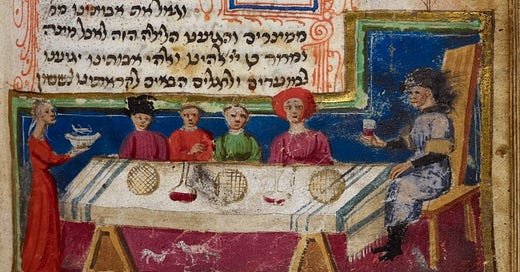 וגאל את אבותינו ממ
ממצרים והגיענו הלילה הזה לאכל מצה
ומרור כן ואלהי אבותינו יגיענו
למועדים ולרגלים הבאים לקראתינו לשלום